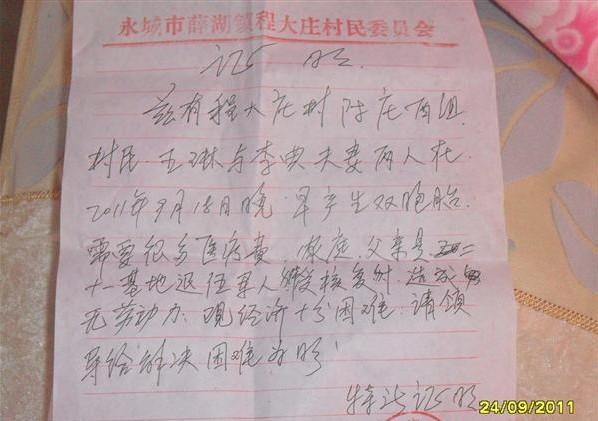 永城市薛湖镇程大庄村民委员会
证明
兹有程大庄村陈庄西组
村民王琳与李典夫妻两人在
2011年9月18日晚早产生双胞胎
需要很多医疗费,家庭,父亲是二
十一基地退伍军人 核 造成
无劳动力,现经济十分困难,请领
导给解决困难为盼
特此证明
24/09/2011